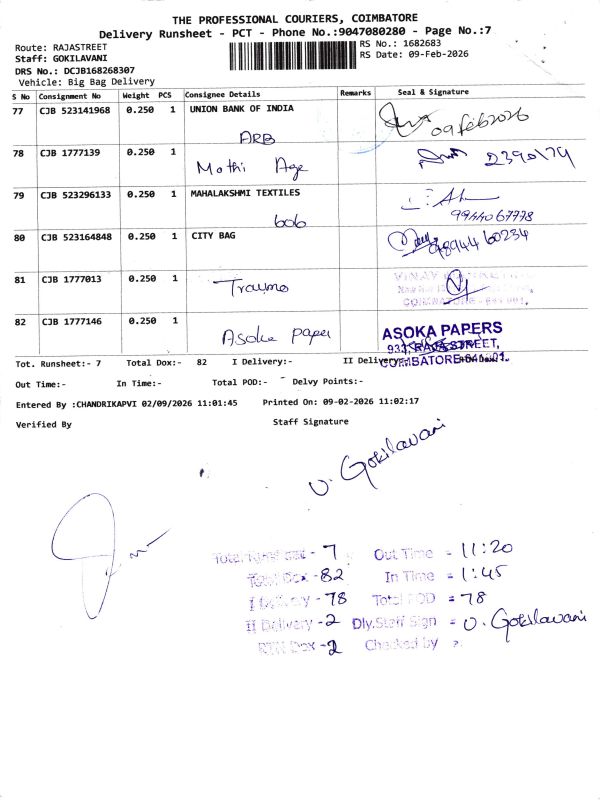 THE PROFESSIONAL COURIERS, COIMBATORE
Delivery Runsheet - PCT - Phone No.:9047080280 - Page No.:7
Route: RAJASTREET
RS No.: 1682683
Staff: GOKILAVANI
RS Date: 09-Feb-2026
DRS No.: DCJB168268307
Vehicle: Big Bag Delivery
S No Consignment No Weight PCS Consignee Details Remarks Seal & Signature
77 CJB 523141968 0.250 1 UNION BANK OF INDIA
09 feb 2026
ARB
78 CJB 1777139 0.250 1
Mothi Age
2390179
79 CJB 523296133 0.250 1 MAHALAKSHMI TEXTILES
bob
9944067778
80 CJB 523164848 0.250 1 CITY BAG
9894460234
81 CJB 1777013 0.250 1
Traumo
82 CJB 1777146 0.250 1
Asoka paper
ASOKA PAPERS
RAJA STREET,
COIMBATORE
Tot. Runsheet:- 7 Total Dox:- 82 I Delivery:- II Delivery:-
Out Time:- In Time:- Total POD:- Delvy Points:-
Entered By :CHANDRIKAPVI 02/09/2026 11:01:45 Printed On: 09-02-2026 11:02:17
Verified By Staff Signature
U. Gokilavani
Total Runsheet - 7 Out Time = 11:20
Total Dox - 82 In Time = 1:45
I Delivery - 78 Total POD = 78
II Delivery - 2 Dly.Staff Sign = U. Gokilavani
RTN Dox - 2 Checked by